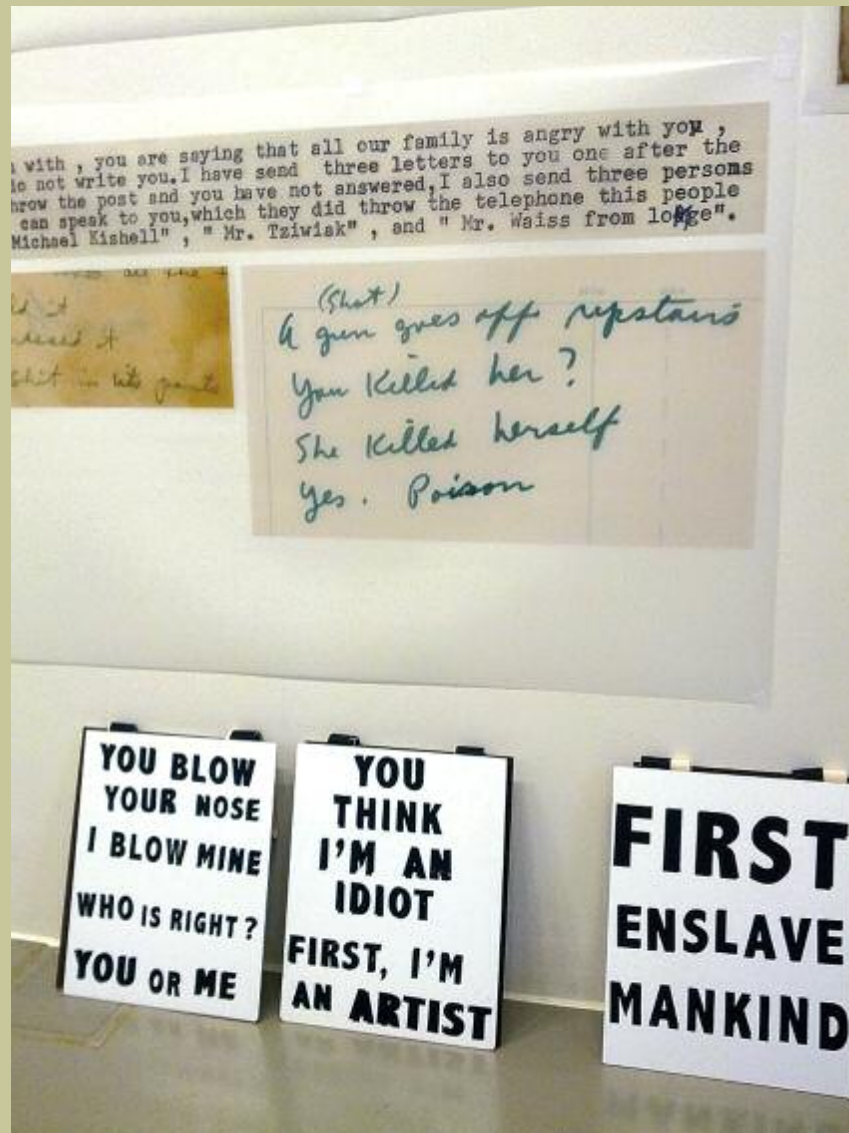 with , you are saying that all our family is angry with you ,
do not write you.I have send three letters to you one after the
throw the post and you have not answered,I also send three persoms
can speak to you,which they did throw the telephone this people
Michael Kishell" , " Mr. Tziwiak" , and " Mr. Waiss from
it
it
shit in his pants
(Shot)
A gun goes off upstairs
You Killed her ?
She Killed herself
Yes . Poison
YOU BLOW
YOUR NOSE
I BLOW MINE
WHO IS RIGHT ?
YOU OR ME
YOU
THINK
I'M AN
IDIOT
FIRST, I'M
AN ARTIST
FIRST
ENSLAVE
MANKIND